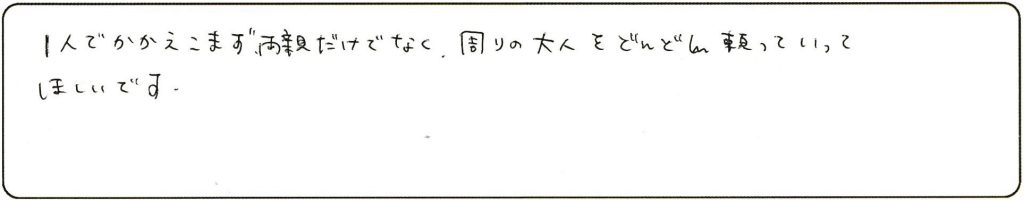 1人でかかえこまず、両親だけでなく、周りの大人をどんどん頼っていって
ほしいです.